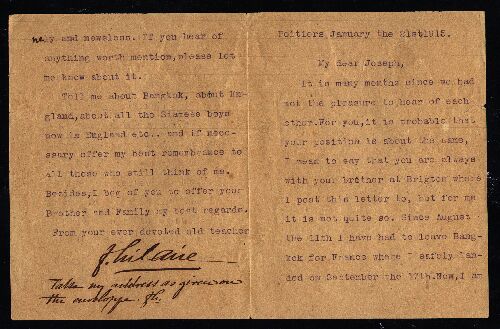 Poitiers January the 21st1915.
My dear Joseph,
It is many months since we had
not the pleasure to hear of each
other.For you,it is probable that
your position is about the same,
I mean to say that you are always
with your brother at Brigton where
I post this letter to, but for me
it is not quite so. Since August
the 11th I have had to leave Bang-
kok for France where I safely lan-
ded on September the 17th.Now,I am
ny and newsless. If you hear of
anything worth mention,please let
me know about it.
Tell me about Bangkok, about En-
gland,about all the Siamese boys
now in England etc.. and if nece-
ssary offer my best remembrance to
all those who still think of me.
Besides,I beg of you to offer your
Brother and Family my best regards.
From your ever devoted old teacher
f. hilaire
Take my address as given on
the enveloppe. fh.